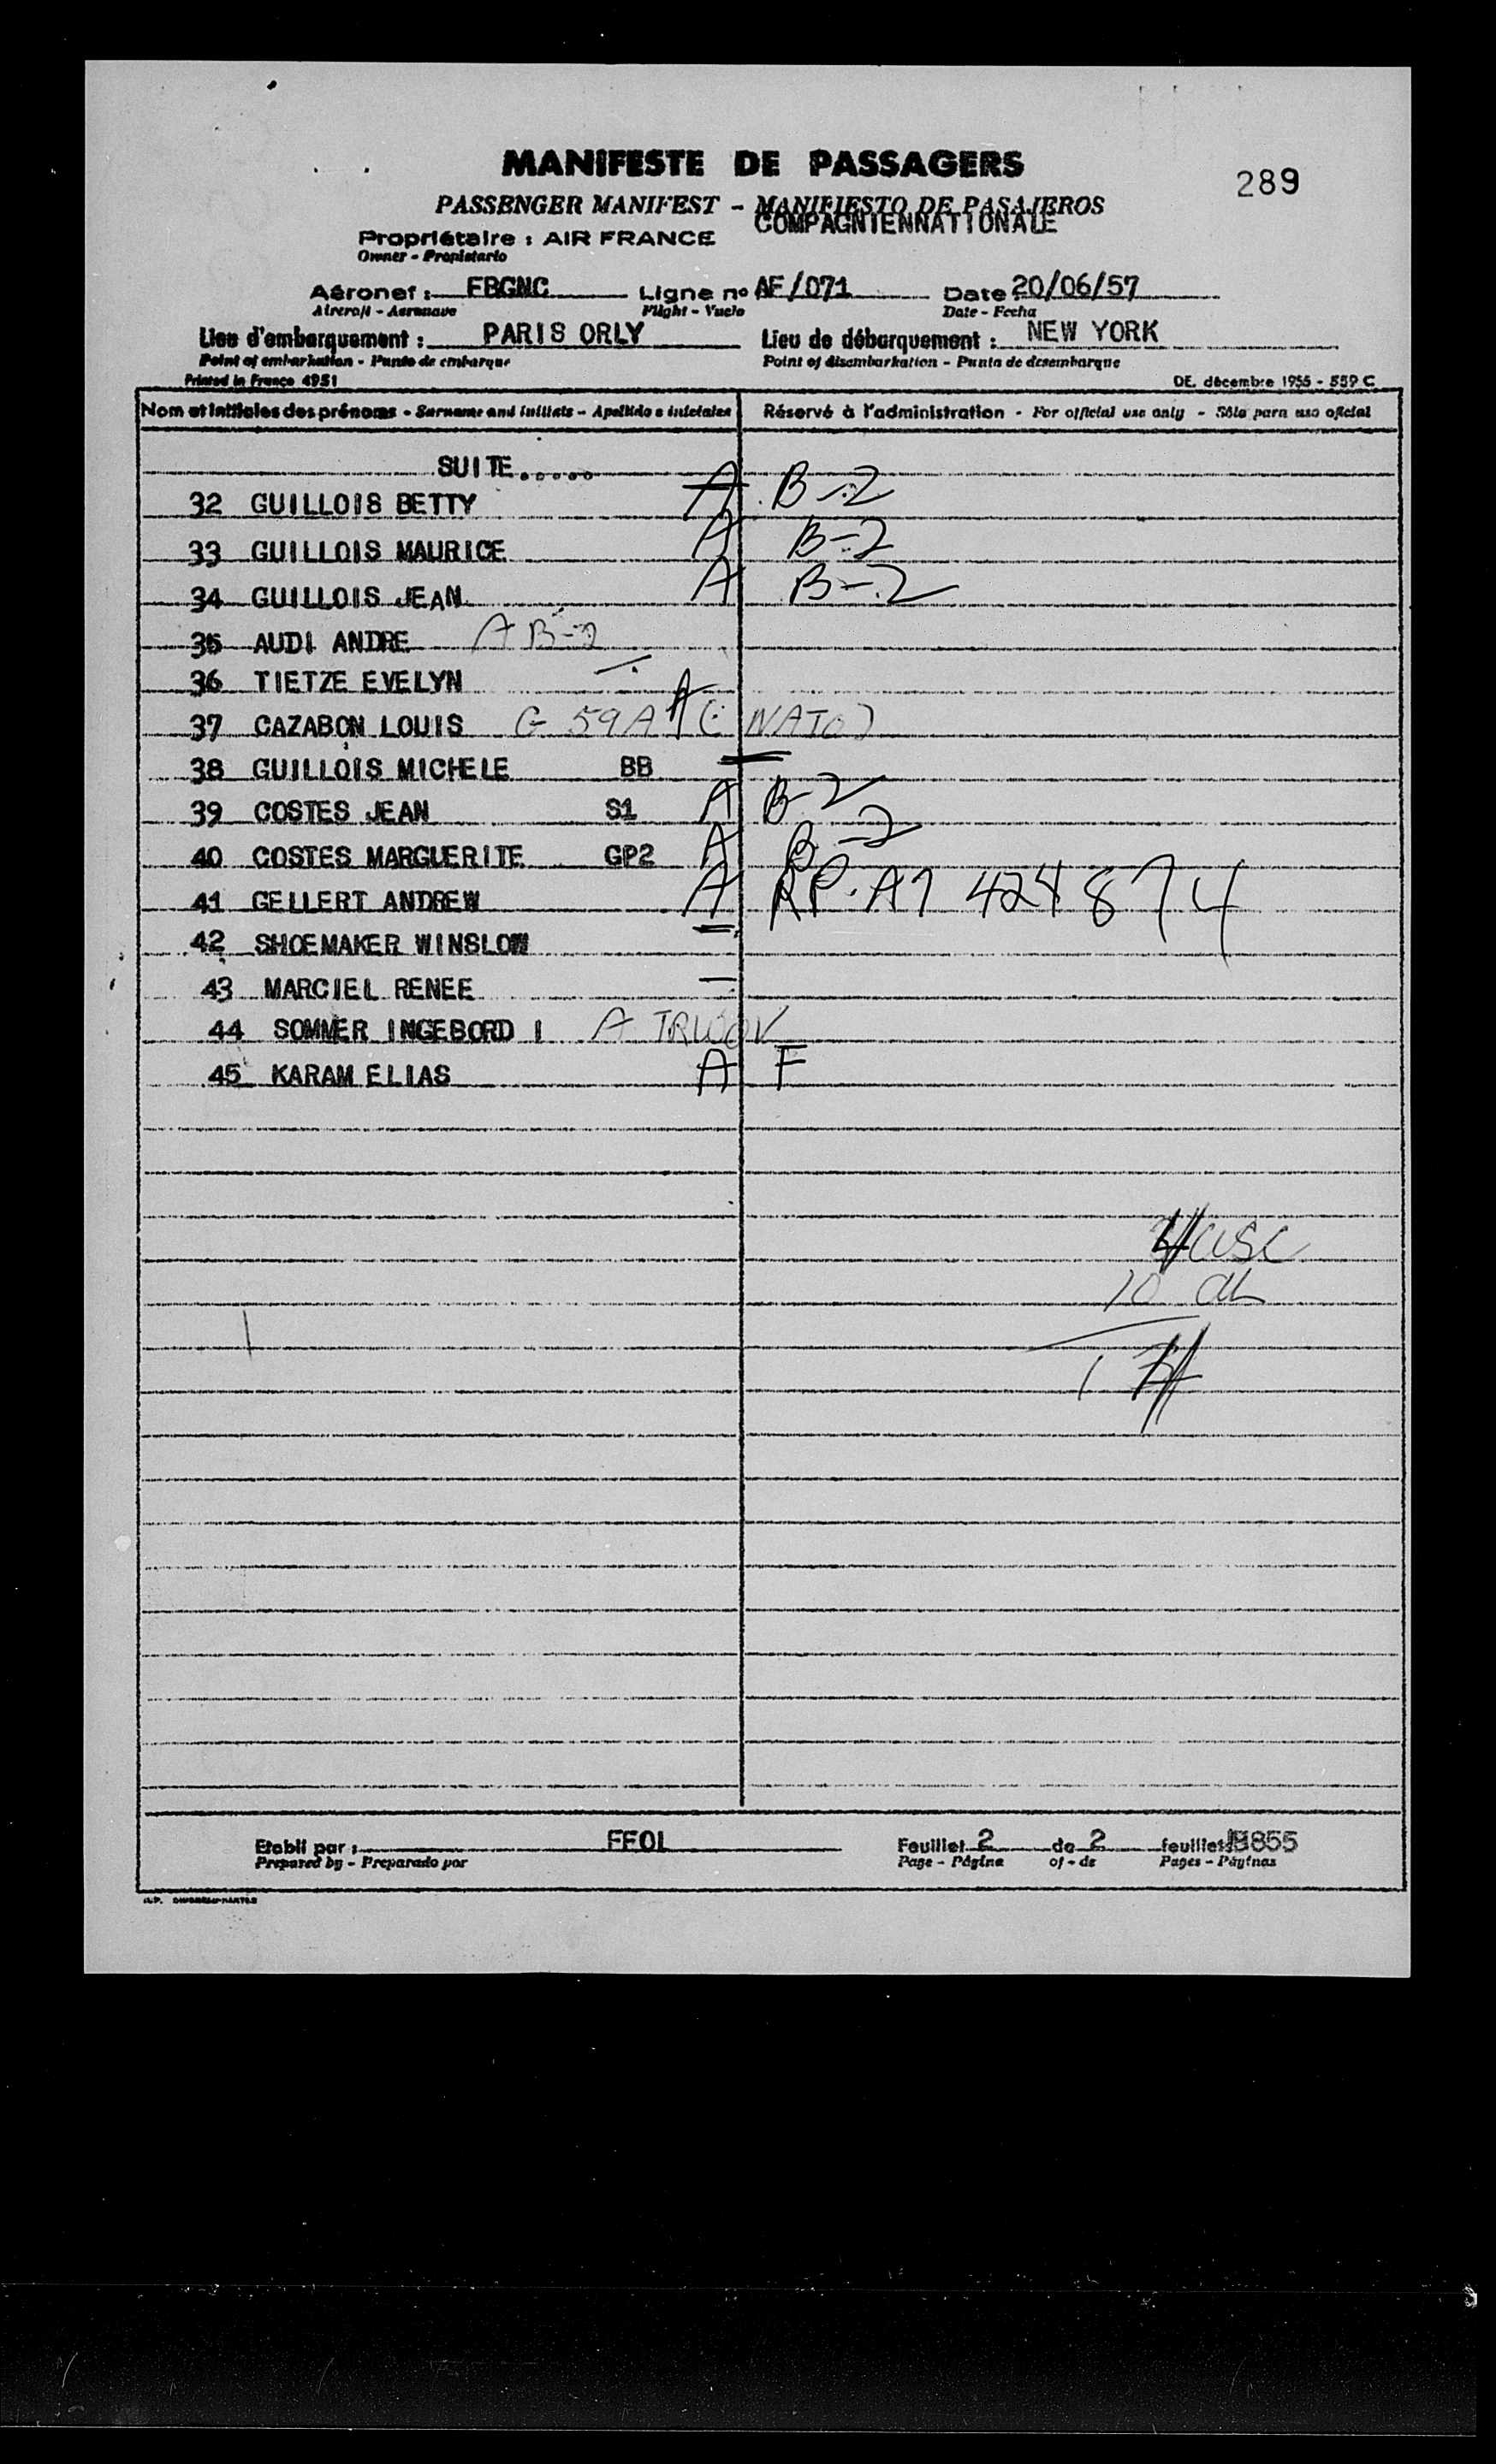 289
MANIFESTE DE PASSAGERS
PASSENGER MANIFEST - MANIFIESTO DE PASAJEROS
COMPAGNIENNATIONALE
Propriétaire : AIR FRANCE
Owner - Propietario
Aéronef : FBGNC Ligne no AF/071 Date 20/06/57
Aircraft - Aeronave Flight - Vuelo Date - Fecha
Lieu d'embarquement : PARIS ORLY Lieu de débarquement : NEW YORK
Point of embarkation - Punto de embarque Point of disembarkation - Punta de desembarque
Printed in France 4951 DE. décembre 1955 - 559 C
Nom et initiales des prénoms - Surname and initials - Apellido e iniciales Réservé à l'administration - For official use only - Sólo para uso oficial
SUITE.....
32 GUILLOIS BETTY A B-2
33 GUILLOIS MAURICE A B-2
34 GUILLOIS JEAN A B-2
35 AUDI ANDRE A B-2
36 TIETZE EVELYN —
37 CAZABON LOUIS G 59A A (NATO)
38 GUILLOIS MICHELE BB
39 COSTES JEAN S1 A B-2
40 COSTES MARGUERITE GP2 A B-2
41 GELLERT ANDREW A RP. A7 424 874
42 SHOEMAKER WINSLOW
43 MARCIEL RENEE —
44 SOMMER INGEBORD I A TRWOV
45 KARAM ELIAS A F
4 USC
10 al
1
Etabli par : FFOL Feuillet 2 de 2 feuillets 855
Prepared by - Preparado por Page - Página of - de Pages - Páginas